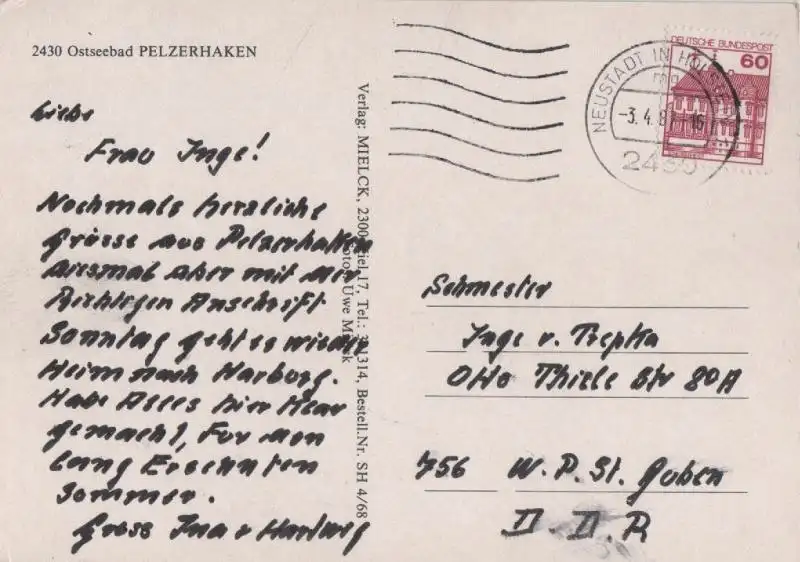 2430 Ostseebad PELZERHAKEN
Liebe
Frau Inge!
Nochmals herzliche
Grüsse aus Pelzerhaken
diesmal aber mit der
Richtigen Anschrift
Sonntag geht es wieder
Heim nach Harburg.
Habe Alles hier Klar
gemacht, Für den
lang Ersehnten
Sommer.
Gruss Ina v Hartwig
Verlag: MIELCK, 2300 Kiel 17, Tel.: 314, Bestell.Nr. SH 4/68
Foto: Uwe Mielck
DEUTSCHE BUNDESPOST
60
NEUSTADT IN HOLST
-3.4.8 -16
2430
Schwester
Inge v. Trepka
Otto Thiele Str 80A
756 W. P. St. Guben
D. D. R